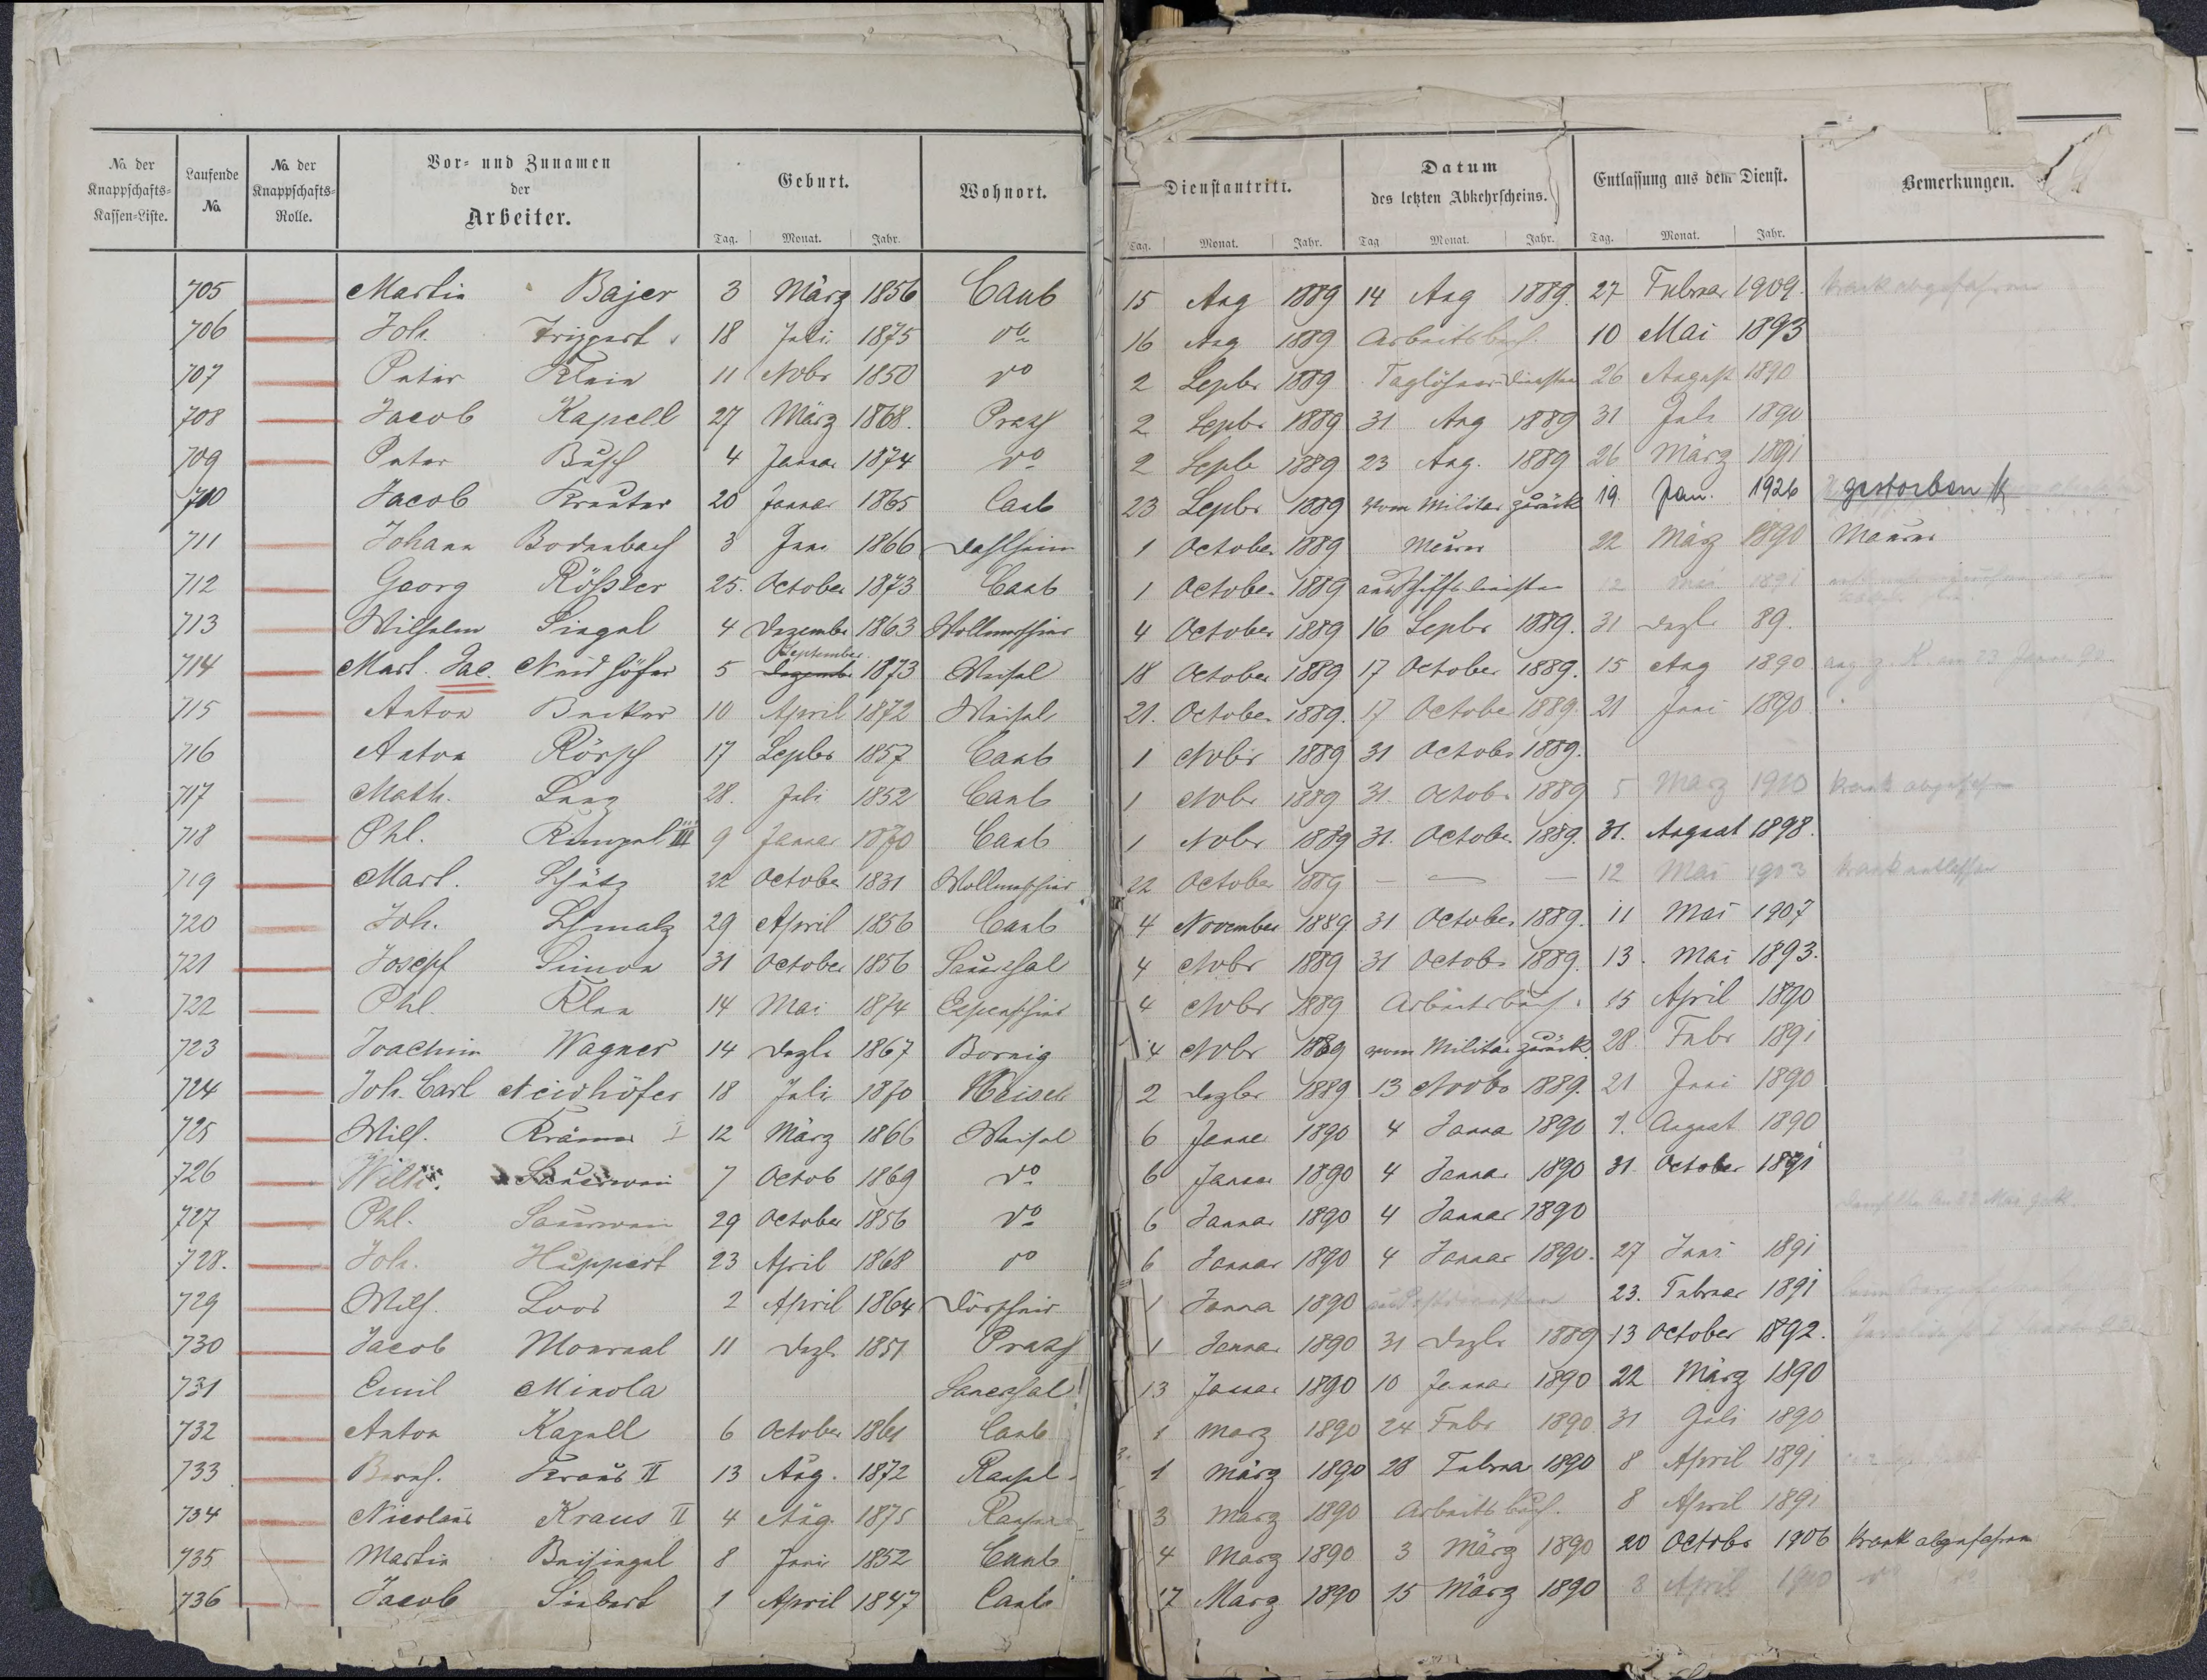 No. der Knappschafts-Kassen-Liste. Laufende No. No. der Knappschafts-Rolle. Vor- und Zunamen der Arbeiter. Geburt. Wohnort. Dienstantritt. Datum des letzten Abkehrscheins. Entlassung aus dem Dienst. Bemerkungen.
Tag. Monat. Jahr. Tag. Monat. Jahr. Tag Monat. Jahr. Tag. Monat. Jahr.
705 Martin Bajer 3 März 1856 Caub 15 Aug 1889 14 Aug 1889. 27 Februar 1909. krank abgefahren
706 Joh. 18 Juli 1875 do 16 Aug 1889 Arbeitsbuch. 10 Mai 1893
707 Peter Klein 11 Nobr 1850 do 2 Sepbr 1889 Taglöhner 26 August 1890
708 Jacob Kapell 27 März 1868. 2 Sepbr 1889 31 Aug 1889 31 Juli 1890
709 Peter Busch 4 Januar 1874 do 2 Sepbr 1889 23 Aug. 1889 26 März 1891
710 Jacob Kreuter 20 Januar 1865 Caub 23 Sepbr 1889 vom Militär zurück 19. Jan. 1926 gestorben
711 Johann Bodenbach 3 Juni 1866 Dahlheim 1 October 1889 Maurer 22 März 1890 Maurer
712 Georg Rößler 25. October 1873 Caub 1 October 1889 12 Mai 1891
713 Wilhelm Siegel 4 Dezember 1863 Wollmerschied 4 October 1889 16 Sepbr 1889. 31 Dezbr 89.
714 Mart. Jac. Neidhöfer 5 September Dezember 1873 Weisel 18 October 1889 17 October 1889. 15 Aug 1890
715 Anton Becker 10 April 1872 Weisel 21. October 1889. 17 October 1889. 21 Juni 1890
716 Anton Rörsch 17 Sepbr 1857 Caub 1 Nobr 1889 31 October 1889.
717 Math. 28. Juli 1852 Caub 1 Nobr 1889 31. Octobr 1889 5 März 1910 krank abgefahren
718 Phl. Rumpel III 9 Januar 1870 Caub 1 Nobr 1889 31. October 1889. 31. August 1898.
719 Mart. Schütz 22 October 1831 Wollmerschied 22 October 1889 — — — 12 Mai 1903 krank entlassen
720 Joh. Schmalz 29 April 1856 Caub 4 November 1889 31 October 1889. 11 Mai 1907
721 Josepf Simon 31 October 1856 Sauerthal 4 Nobr 1889 31 Octobr 1889. 13. Mai 1893.
722 Phl. 14 Mai 1874 Espenschied 4 Nobr 1889 Arbeitsbuch. 15 April 1890
723 Joachim Wagner 14 Dezbr 1867 Bornig 4 Nobr 1889 vom Militär zurück. 28 Febr 1891
724 Joh. Carl Neidhöfer 18 Juli 1870 Weisel 2 Dezbr 1889 13 Novbr 1889. 21 Juni 1890
725 Wilh. Krämer I 12 März 1866 Weisel 6 Januar 1890 4 Januar 1890 1. August 1890
726 Wilh. Sauerwein 7 Octob 1869 do 6 Januar 1890 4 Januar 1890 31 October 1891
727 Phl. Sauerwein 29 October 1856 do 6 Januar 1890 4 Januar 1890
728. Joh. Huppert 23 April 1868 do 6 Januar 1890 4 Januar 1890. 27 Juni 1891
729 Wilh. Loos 2 April 1864 Dörscheid 1 Januar 1890 23. Februar 1891
730 Jacob Monreal 11 Dezbr 1851 1 Januar 1890 31 Dezbr 1889 13 October 1892.
731 Emil Minola Sauerthal 13 Januar 1890 10 Januar 1890 22 März 1890
732 Anton Kapell 6 October 1861 Caub 1 März 1890 24 Febr 1890 31 Juli 1890
733 Bernh. Kraus II 13 Aug. 1872 Ransel 1 März 1890 28 Februar 1890 8 April 1891
734 Nicolaus Kraus II 4 Aug. 1875 Ransel 3 März 1890 Arbeitsbuch. 8 April 1891
735 Martin Beisiegel 8 Juni 1852 Caub 4 März 1890 3 März 1890 20 Octobr 1906 krank abgefahren
736 Jacob Siebert 1 April 1847 Caub 17 März 1890 15 März 1890 8 April 1910 do